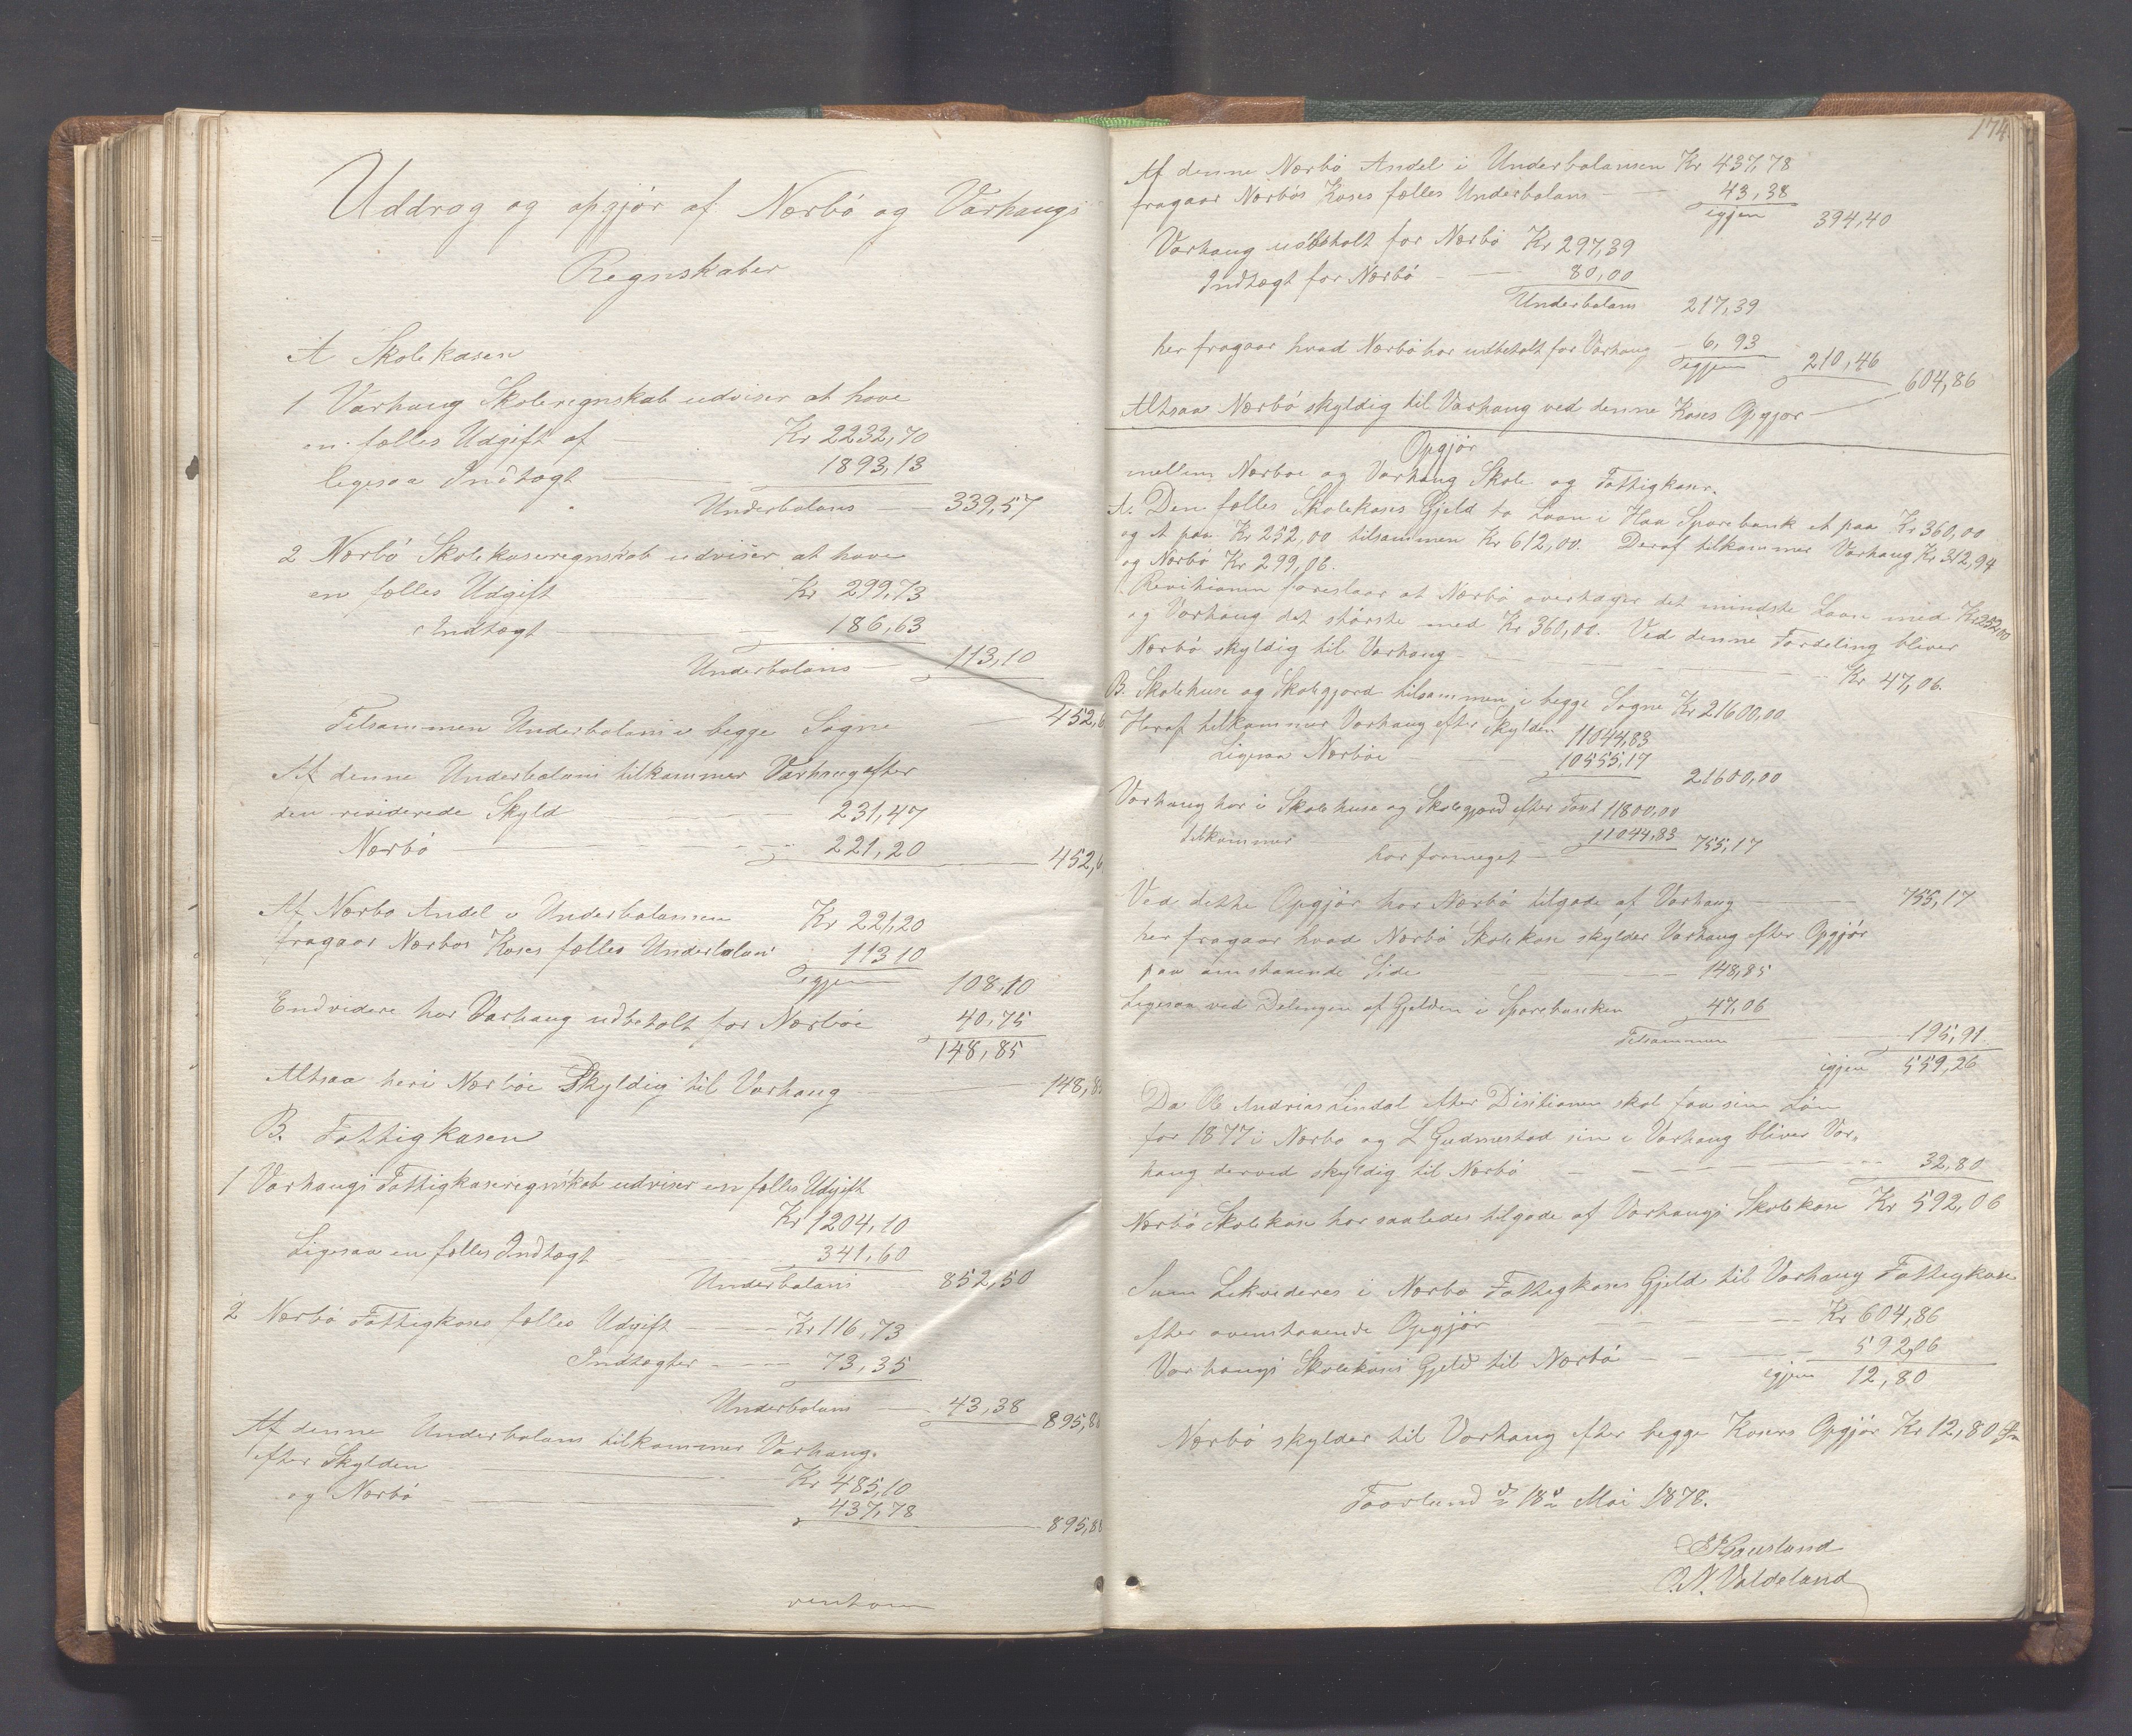 Uddrag og opgjør af Nærbø og Varhaugs
Regnskaber
A Skolekasen
1 Varhaug Skoleregnskab udviser at have
en fælles Udgift af — Kr 2232,70
ligesaa Indtægt — 1893,13
Underbalans — 339,57
2 Nærbø Skolekaseregnskab udviser at have
en fælles Udgift — Kr 299,73
Indtægt — 186,63
Underbalans — 113,10
Tilsammen Underbalans i begge Sogne — 452,6
Af denne Underbalans tilkommer Varhaug efter
den reviderede Skyld — 231,47
Nærbø — 221,20 — 452,6
Af Nærbø Andel i Underbalansen Kr 221,20
fragaar Nærbøs Kases fælles Underbalans 113 10
igjen 108,10
Endvidere har Varhaug udbetalt for Nærbøe 40,75
148,85
Altsaa heri Nærbøe Skyldig til Varhaug — 148,8
B. Fattigkasen
1 Varhaugs Fattigkaseregnskab udviser en fælles Udgift
Kr 1204,10
Ligesaa en fælles Indtægt — 341,60
Underbalans 852,50
2 Nærbø Fattigkases fælles Udgift — Kr 116,73
Indtægter — 73,35
Underbalans — 43,38 895,8
Af denne Underbalans tilkommer Varhaug
efter Skylden — Kr 485,10
og Nærbø — 437,78
895,88
vend om
174
Af denne Nærbø Andel i Underbalansen Kr 437,78
fragaar Nærbøs Kases fælles Underbalans — 43,38
igjen 394,40
Varhaug udbetalt for Nærbø Kr 297,39
Indtægt for Nærbø — 80,00
Underbalans 217,39
her fragaar hvad Nærbø har udbetalt for Varhaug — 6,93
igjen 210,46
604,86
Altsaa Nærbø skyldig til Varhaug ved denne Kases Opgjør —
Opgjør
mellem Nærbøe og Varhaug Skole og Fattigkaser.
A. Den fælles Skolekases Gjeld to Laan i Haa Sparebank et paa Kr 360,00
og et paa Kr 252,00 tilsammen Kr 612,00. Deraf tilkommer Varhaug Kr 312,94
og Nærbø Kr 299,06.
Revitionen foreslaar at Nærbø overtager det mindste Laan med Kr 252,00
og Varhaug det største med Kr 360,00. Ved denne Fordeling bliver
Nærbø skyldig til Varhaug — Kr 47,06.
B. Skolehuse og Skolegjord tilsammen i begge Sogne Kr 21600,00
Heraf tilkommer Varhaug efter Skylden 11044,83
Ligesaa Nærbøe — 10555,17
21600,00
Varhaug har i Skolehuse og Skolegjord efter Taxt 11800,00
tilkommer — 11044,83
har formeget — 755,17
Ved dette Opgjør har Nærbø tilgode af Varhaug — 755,17
her fragaar hvad Nærbø Skolekase skylder Varhaug efter Opgjør
paa omstaaende Side — 148,85
Ligesaa ved Delingen af Gjelden i Sparebanken 47,06
Tilsammen — 195,91
igjen 559,26
Da Ole Andrias Lindal efter Disitionen skal faa sin Løn
for 1877 i Nærbø og L Gudmestad sin i Varhaug bliver Var-
haug derved skyldig til Nærbø — 32,80
Nærbø Skolekase har saaledes tilgode af Varhaugs Skolekase Kr 592,06
Som Likvideres i Nærbø Fattigkases Gjeld til Varhaug Fattigkase
efter ovenstaaende Opgjør — Kr 604,86
Varhaugs Skolekases Gjeld til Nærbø — 592,06
igjen 12,80
Nærbø skylder til Varhaug efter begge Kasers Opgjør Kr 12,80
18 Mai 1878.
O. N. Valdeland